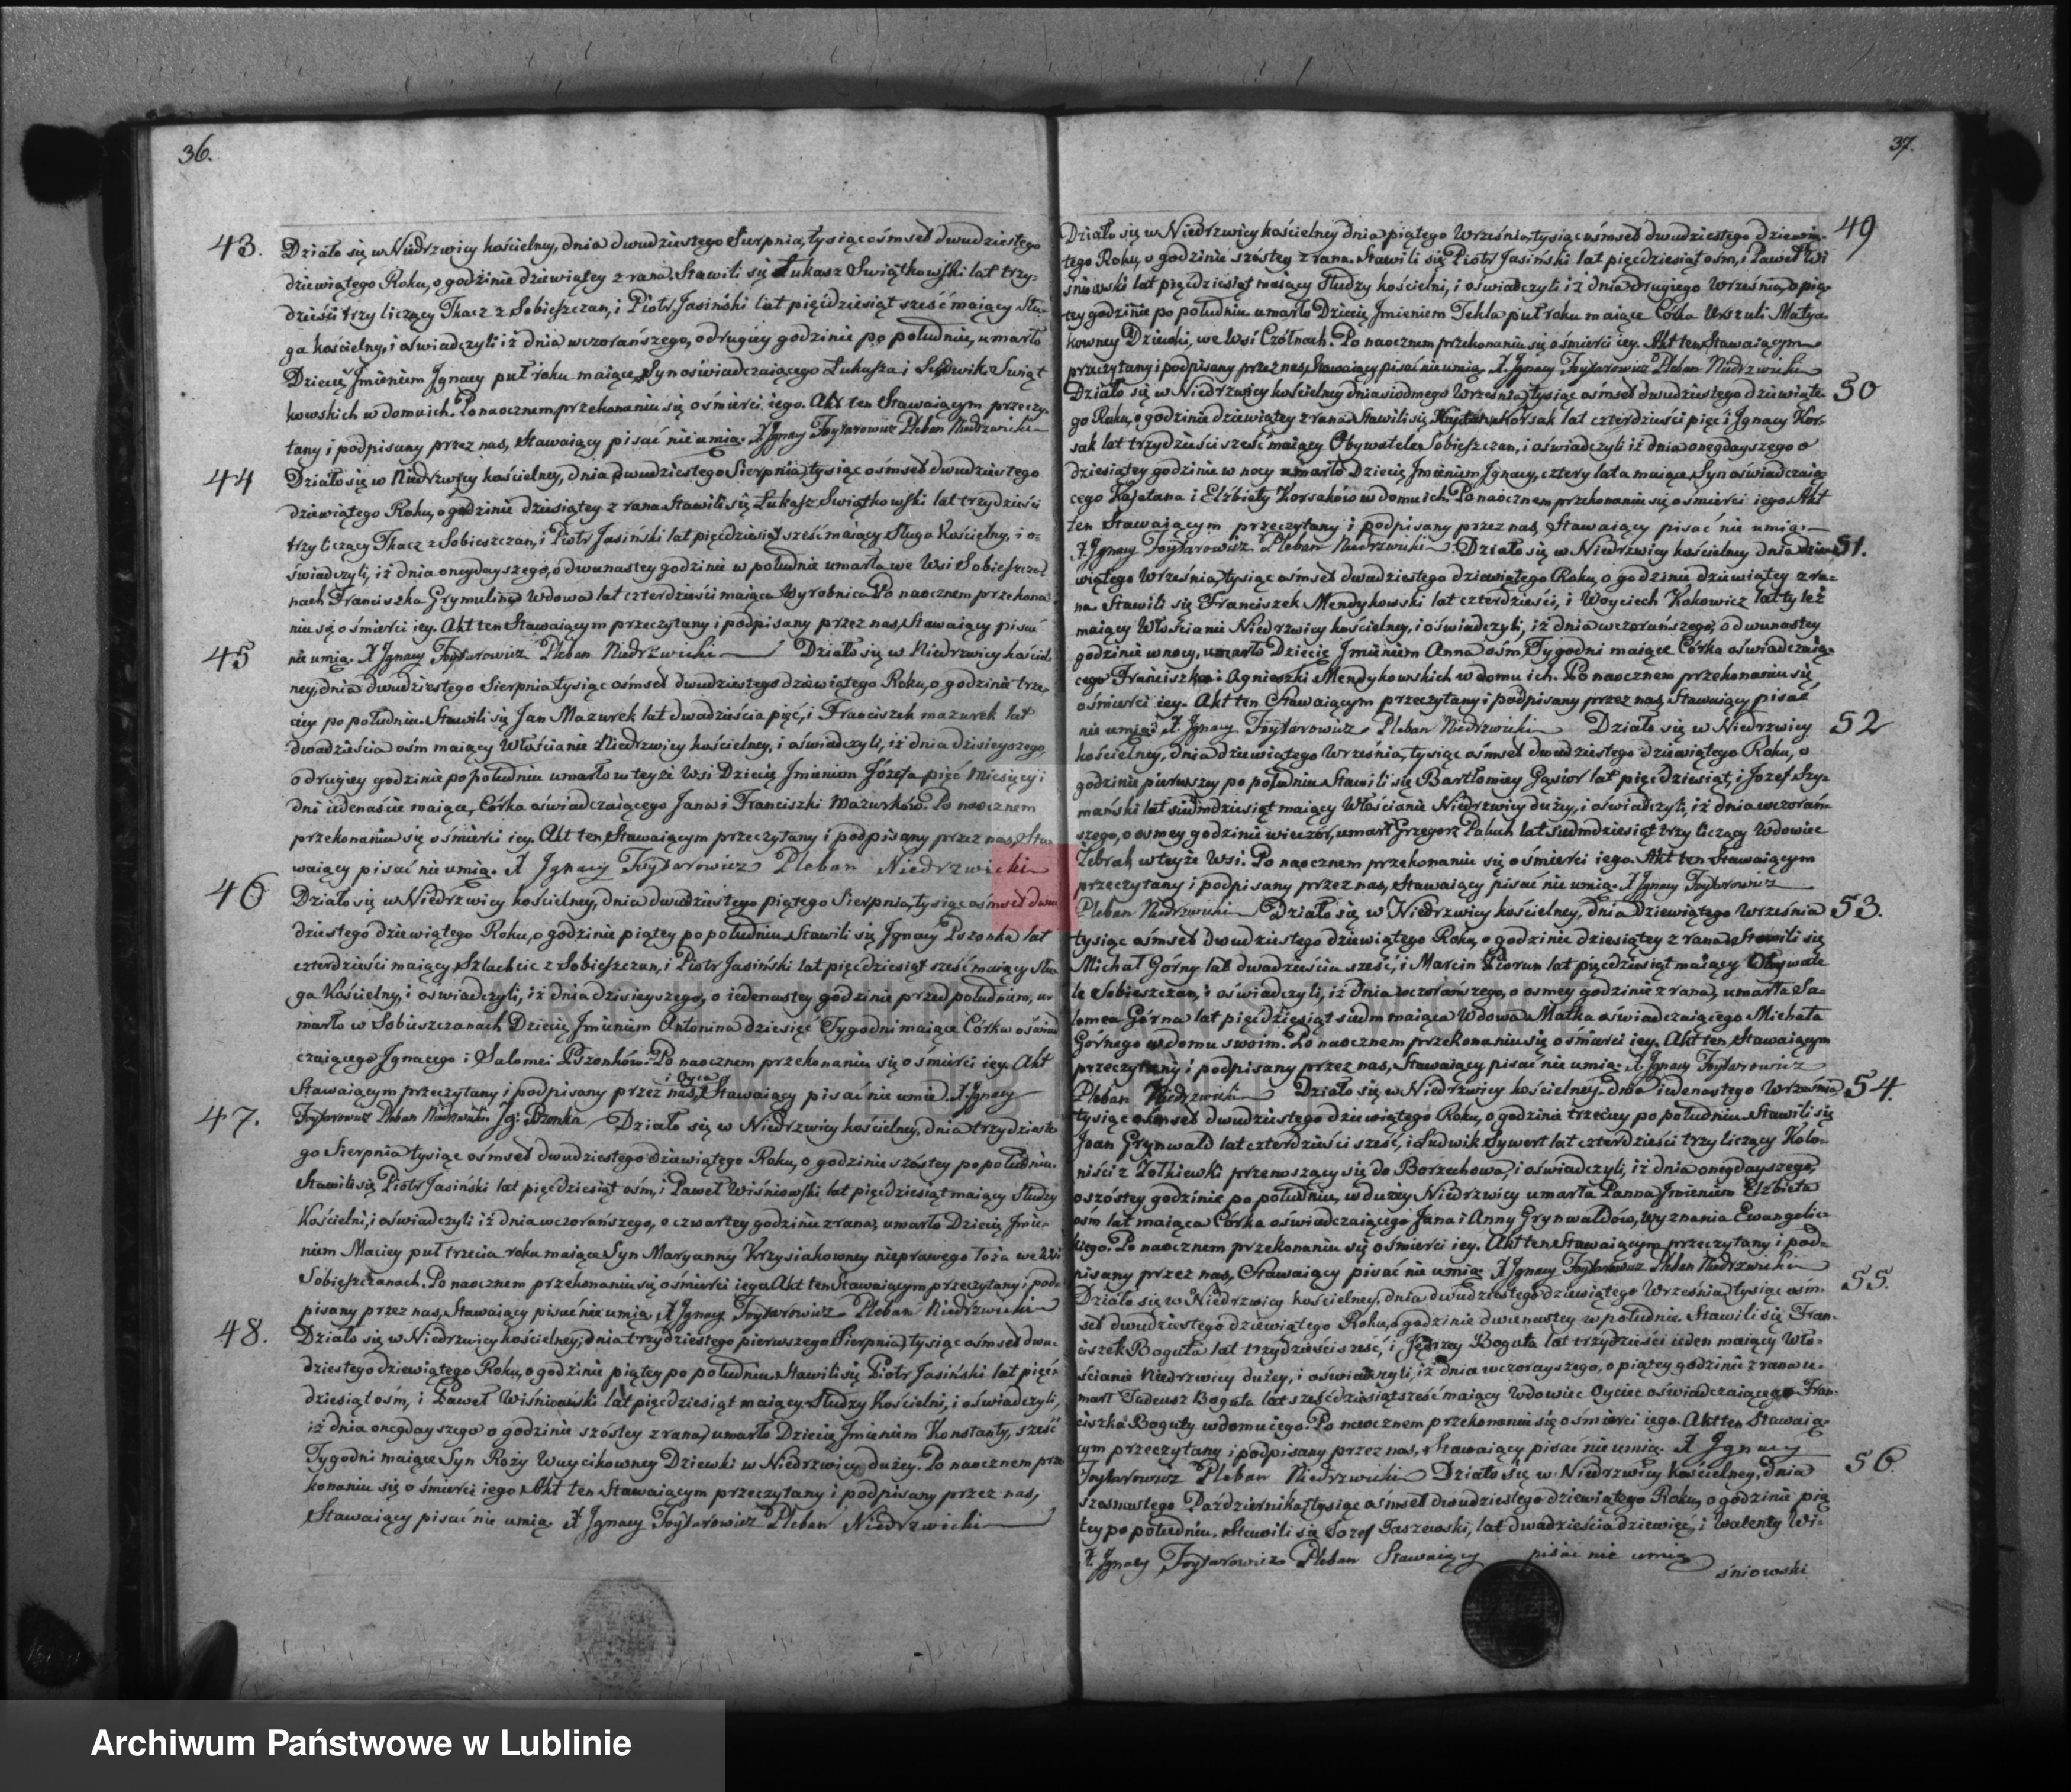 36.
43. Działo się w Niedrzwicy kościelney, dnia dwudziestego Sierpnia, tysiąc ośmset dwudziestego
dziewiątego Roku, o godzinie dziewiątey z rana. Stawili się Łukasz Swiątkowski lat trzy-
dzieści trzy liczący Tkacz z Sobieszczan, i Piotr Jasiński lat pięćdziesiąt sześć maiący Słu-
ga kościelny, i oświadczyli iż dnia wczorayszego, o drugiey godzinie po południu, umarło
Dziecię Jmieniem Jgnacy puł roku maiące, Syn oświadczaiącego Łukasza i Ludwiki Swiąt
kowskich w domu ich. Po naocznem przekonaniu się o śmierci iego. Akt ten Stawaiącym przeczy-
tany i podpisany przez nas, Stawaiący pisać nie umią. X Jgnacy Foytarowicz Pleban Niedrzwicki
44 Działo się w Niedrzwicy kościelney, dnia dwudziestego Sierpnia, tysiąc ośmset dwudziestego
dziewiątego Roku, o godzinie dziesiątey z rana. Stawili się Łukasz Swiątkowski lat trzydzieści
trzy liczący Tkacz z Sobieszczan, i Piotr Jasiński lat pięćdziesiąt sześć maiący Sługa Kościelny, i o-
świadczyli, iż dnia onegdayszego, o dwunastey godzinie w południe umarła we Wsi Sobieszcza-
nach Franciszka Grymulina Wdowa lat czterdzieści maiąca Wyrobnica. Po naocznem przekona
niu się o śmierci iey. Akt ten Stawaiącym przeczytany i podpisany przez nas, Stawaiący pisać
45 nie umią. X Jgnacy Foytarowicz Pleban Niedrzwicki Działo się w Niedrzwicy kościel
ney, dnia dwudziestego Sierpnia tysiąc ośmset dwudziestego dziewiątego Roku, o godzinie trze-
ciey po południu. Stawili się Jan Mazurek lat dwadzieścia pięć, i Franciszek mazurek lat
dwadzieścia ośm maiący Włościanie Niedrzwicy kościelney, i oświadczyli, iż dnia dzisieyszego
o drugiey godzinie po południu umarło w teyże Wsi Dziecię Jmieniem Józefa pięć Miesięcy i
dni iedenaście maiące, Córka oświadczaiącego Jana i Franciszki Mazurków. Po naocznem
przekonaniu się o śmierci iey. Akt ten Stawaiącym przeczytany i podpisany przez nas, Sta-
waiący pisać nie umią. X Jgnacy Foytarowicz Pleban Niedrzwicki
46 Działo się w Niedrzwicy kościelney, dnia dwudziestego piątego Sierpnia, tysiąc ośmset dwu
dziestego dziewiątego Roku, o godzinie piątey po południu. Stawili się Jgnacy Pszonka lat
czterdzieści maiący Szlachcic z Sobieszczan, i Piotr Jasiński lat pięćdziesiąt sześć maiący Słu-
ga Kościelny, i oświadczyli, iż dnia dzisieyszego, o iedenastey godzinie przed południem, u-
marło w Sobieszczanach Dziecię Jmieniem Antonina dziesięć Tygodni maiące Córka oświad
czaiącego Jgnacego i Salomei Pszonków. Po naocznem przekonaniu się o śmierci iey. Akt
i Oyca
Stawaiącym przeczytany i podpisany przez nas, Stawaiący pisać nie umie. X Jgnacy
47. Foytarowicz Pleban Niedrzwicki Jg: Pszonka Działo się w Niedrzwicy kościelney, dnia trzydzieste
go Sierpnia tysiąc ośmset dwudziestego dziewiątego Roku, o godzinie szóstey po południu.
Stawili się Piotr Jasiński lat pięćdziesiąt ośm, i Paweł Wiśniowski lat pięćdziesiąt maiący Słudzy
Kościelni, i oświadczyli iż dnia wczorayszego, o czwartey godzinie z rana, umarło Dziecię Jmie-
niem Maciey puł trzecia roku maiące Syn Maryanny Krzysiakowney nieprawego łoża we Wsi
Sobieszczanach. Po naocznem przekonaniu się o śmierci iego. Akt ten Stawaiącym przeczytany i pod-
pisany przez nas, Stawaiący pisać nie umią. X Jgnacy Foytarowicz Pleban Niedrzwicki
48. Działo się w Niedrzwicy kościelney, dnia trzydziestego pierwszego Sierpnia, tysiąc ośmset dwu-
dziestego dziewiątego Roku, o godzinie piątey po południu. Stawili się Piotr Jasiński lat pięć
dziesiąt ośm, i Paweł Wiśniowski lat pięćdziesiąt maiący Słudzy Kościelni, i oświadczyli,
iż dnia onegdayszego o godzinie szóstey z rana, umarło Dziecię Jmieniem Konstanty, sześć
Tygodni maiące Syn Roży Wuycikowney Dziewki w Niedrzwicy dużey. Po naocznem prze
konaniu się o śmierci iego. Akt ten Stawaiącym przeczytany i podpisany przez nas,
Stawaiący pisać nie umią. X Jgnacy Foytarowicz Pleban Niedrzwicki
37.
Działo się w Niedrzwicy kościelney dnia piątego Września, tysiąc ośmset dwudziestego dziewią- 49
tego Roku, o godzinie szóstey z rana. Stawili się Piotr Jasiński lat pięćdziesiąt ośm, i Paweł Wi
śniowski lat pięćdziesiąt maiący Słudzy kościelni, i oświadczyli iż dnia drugiego Września, o pią-
tey godzinie po południu umarło Dziecię Jmieniem Tekla puł roku maiące Córka Urszuli Małya-
kowney Dziewki, we Wsi Czółnach. Po naocznem przekonaniu się o śmierci iey. Akt ten Stawaiącym
przeczytany i podpisany przez nas, Stawaiący pisać nie umią. X Jgnacy Foytarowicz Pleban Niedrzwicki
Działo się w Niedrzwicy kościelney dnia siodmego Września, tysiąc ośmset dwudziestego dziewiąte- 50
go Roku, o godzinie dziewiątey z rana. Stawili się Kajetan Korsak lat czterdzieści pięć i Jgnacy Kor-
sak lat trzydzieści sześć maiący Obywatele z Sobieszczan, i oświadczyli iż dnia onegdayszego o
dziesiątey godzinie w nocy umarło Dziecię Jmieniem Jgnacy, cztery lata maiące, Syn oświadczaią-
cego Kajetana i Elżbiety Korsaków w domu ich. Po naocznem przekonaniu się o śmierci iego. Akt
ten Stawaiącym przeczytany i podpisany przez nas, Stawaiący pisać nie umią.
X Jgnacy Foytarowicz Pleban Niedrzwicki. Działo się w Niedrzwicy kościelney dnia dzie- 51.
wiątego Września, tysiąc ośmset dwudziestego dziewiątego Roku, o godzinie dziewiątey z ra-
na. Stawili się Franciszek Mendykowski lat czterdzieści, i Woyciech Kokowicz lat tyleż
maiący Włościanie Niedrzwicy kościelney, i oświadczyli, iż dnia wczorayszego, o dwunastey
godzinie w nocy, umarło Dziecię Jmieniem Anna ośm Tygodni maiące Córka oświadczaią-
cego Franciszka i Agnieszki Mendykowskich w domu ich. Po naocznem przekonaniu się
o śmierci iey. Akt ten Stawaiącym przeczytany i podpisany przez nas, Stawaiący pisać
nie umią. X Jgnacy Foytarowicz Pleban Niedrzwicki Działo się w Niedrzwicy 52
kościelney, dnia dziewiątego Września, tysiąc ośmset dwudziestego dziewiątego Roku, o
godzinie pierwszey po południu. Stawili się Bartłomiey Gąsior lat pięćdziesiąt, i Jozef Szy-
mański lat siedmdziesiąt maiący Włościanie Niedrzwicy dużey, i oświadczyli, iż dnia wczoray-
szego, o osmey godzinie wieczór, umarł Grzegorz Paluch lat siedmdziesiąt trzy liczący Wdowiec
Żebrak w teyże Wsi. Po naocznem przekonaniu się o śmierci iego. Akt ten Stawaiącym
przeczytany i podpisany przez nas, Stawaiący pisać nie umią. X Jgnacy Foytarowicz
Pleban Niedrzwicki Działo się w Niedrzwicy kościelney, dnia dziewiątego Września 53.
tysiąc ośmset dwudziestego dziewiątego Roku, o godzinie dziesiątey z rana. Stawili się
Michał Górny lat dwadzieścia sześć, i Marcin Piorun lat pięćdziesiąt maiący Obywate
le Sobieszczan, i oświadczyli, iż dnia wczorayszego, o osmey godzinie z rana, umarła Sa-
lomea Górna lat pięćdziesiąt siedm maiąca Wdowa Matka oświadczaiącego Michała
Górnego w domu swoim. Po naocznem przekonaniu się o śmierci iey. Akt ten Stawaiącym
przeczytany i podpisany przez nas, Stawaiący pisać nie umią. X Jgnacy Foytarowicz
Pleban Niedrzwicki Działo się w Niedrzwicy kościelney, dnia iedenastego Września 54.
tysiąc ośmset dwudziestego dziewiątego Roku, o godzinie trzeciey po południu. Stawili się
Joan Grynwald lat czterdzieści sześć, i Ludwik Sywert lat czterdzieści trzy liczący Kolo-
niści z Żołkiewki przenoszący się do Borzechowa, i oświadczyli, iż dnia onegdayszego,
o szóstey godzinie po południu, w dużey Niedrzwicy umarła Panna Jmieniem Elżbieta
ośm lat maiąca Córka oświadczaiącego Jana i Anny Grynwaldów, wyznania Ewangelic-
kiego. Po naocznem przekonaniu się o śmierci iey. Akt ten Stawaiącym przeczytany i pod-
pisany przez nas, Stawaiący pisać nie umią. X Jgnacy Foytarowicz Pleban Niedrzwicki
Działo się w Niedrzwicy kościelney, dnia dwudziestego dziewiątego Września, tysiąc ośm- 55.
set dwudziestego dziewiątego Roku, o godzinie dwunastey w południe. Stawili się Fran-
ciszek Boguta lat trzydzieści sześć, i Jędrzey Boguta lat trzydzieści ieden maiący Wło-
ścianie Niedrzwicy dużey, i oświadczyli, iż dnia wczorayszego, o piątey godzinie z rana u-
marł Tadeusz Boguta lat sześćdziesiąt sześć maiący Wdowiec Oyciec oświadczaiącego Fran-
ciszka Boguty w domu iego. Po naocznem przekonaniu się o śmierci iego. Akt ten Stawaią-
cym przeczytany i podpisany przez nas, Stawaiący pisać nie umią. X Jgnacy
Foytarowicz Pleban Niedrzwicki Działo się w Niedrzwicy Kościelney, dnia 56.
szosnastego Października, tysiąc ośmset dwudziestego dziewiątego Roku, o godzinie pią
tey po południu. Stawili się Jozef Taszewski, lat dwadzieścia dziewięć, i Walenty Wi-
X Jgnacy Foytarowicz Pleban Stawaiący pisać nie umią
śniowski
Archiwum Państwowe w Lublinie